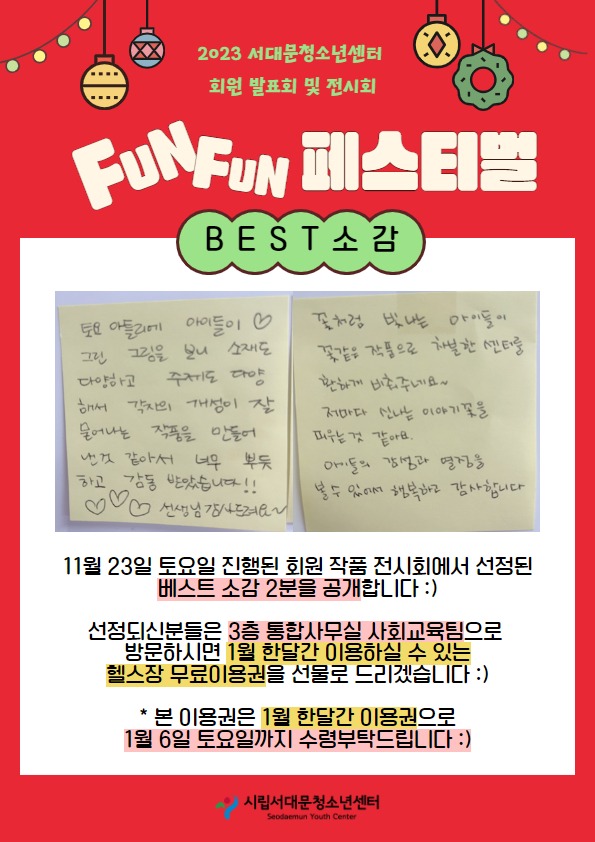 2023 서대문청소년센터
회원 발표회 및 전시회
FUNFUN 페스티벌
BEST소감
토요 아뜰리에 아이들이 ♡
그린 그림을 보니 소재도
다양하고 주제도 다양
해서 각자의 개성이 잘
묻어나는 작품을 만들어
낸것 같아서 너무 뿌듯
하고 감동 받았습니다!!
♡♡♡ 선생님 감사드려요~
꽃처럼 빛나는 아이들이
꽃같은 작품으로 차분한 센터를
환하게 비춰주네요~
저마다 신나는 이야기꽃을
피우는것 같아요.
아이들의 감성과 열정을
볼 수 있어서 행복하고 감사합니다
11월 23일 토요일 진행된 회원 작품 전시회에서 선정된
베스트 소감 2분을 공개합니다 :)
선정되신분들은 3층 통합사무실 사회교육팀으로
방문하시면 1월 한달간 이용하실 수 있는
헬스장 무료이용권을 선물로 드리겠습니다 :)
* 본 이용권은 1월 한달간 이용권으로
1월 6일 토요일까지 수령부탁드립니다 :)
시립서대문청소년센터
Seodaemun Youth Center